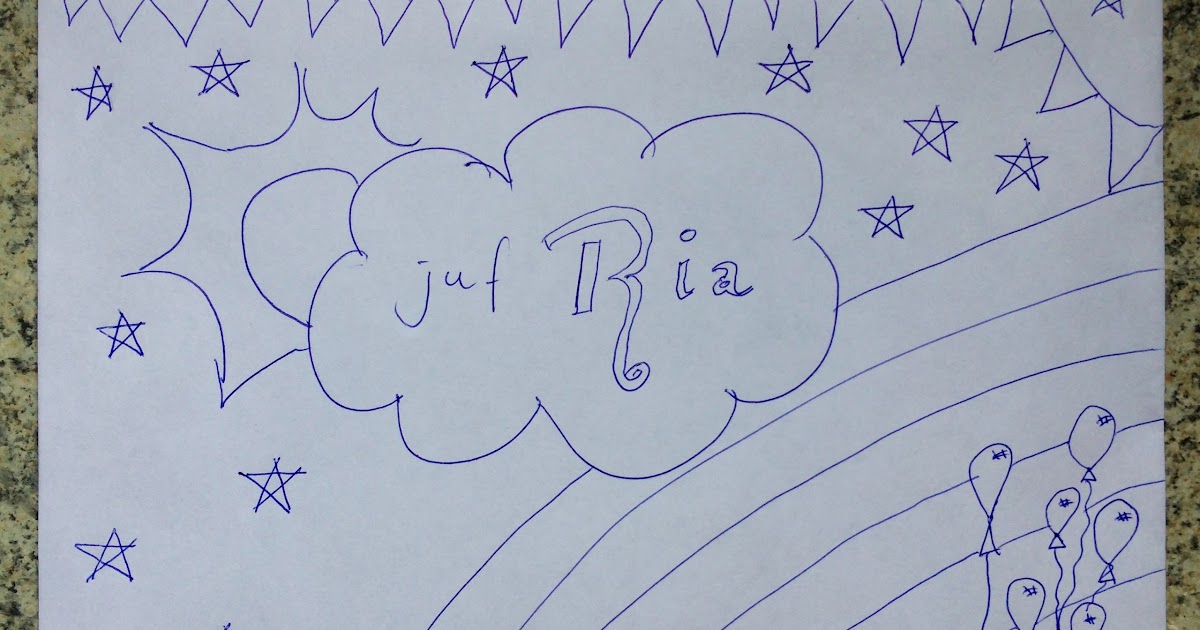 juf Ria